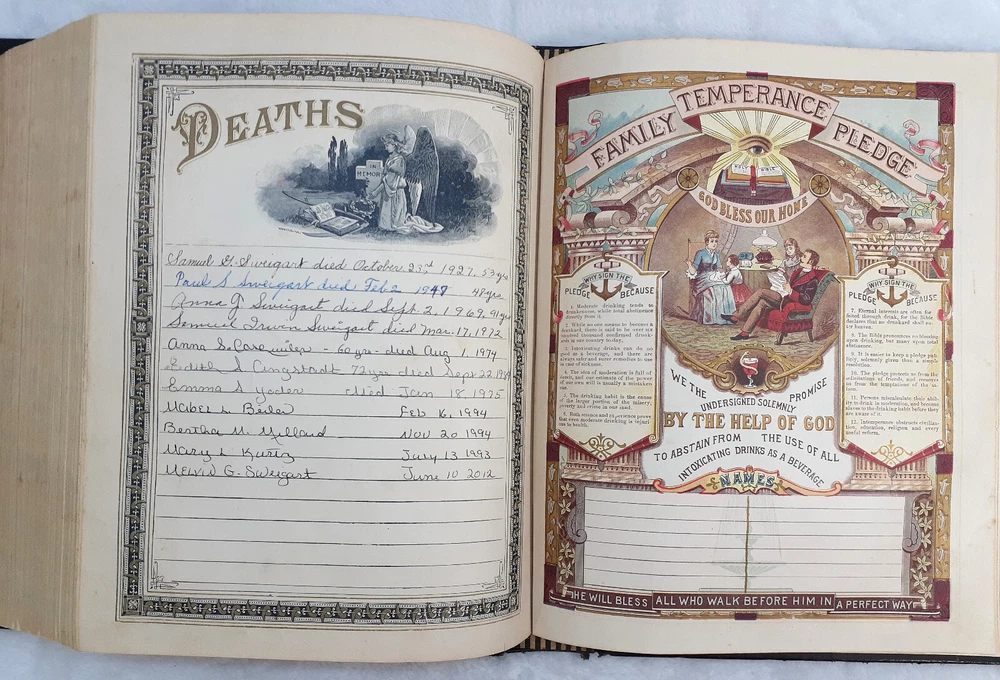 DEATHS
IN
MEMORY
Samuel G. Sweigart died October 23rd 1927. 53 yrs
Paul S Sweigart died Feb 2 1947 48 yrs
Anna G. Sweigart died Sept. 2, 1969. 91 yrs
Samuel Irwin Sweigart died Mar. 17, 1972
Anna S. 60 yrs - died Aug 1, 1974
Edith L. Lingstadt 72 yrs died Sept 22
Emma S Yoder died Jan 18, 1975
Mabel L Beiler Feb 16, 1994
Bertha M. Millard Nov 20 1994
Mary L Kurtz July 13 1993
Melvin G. Sweigart June 10 2012
FAMILY TEMPERANCE PLEDGE
HOLY BIBLE
GOD BLESS OUR HOME
WHY SIGN THE
PLEDGE BECAUSE
1. Moderate drinking tends to
drunkenness, while total abstinence
directly from it.
2. While no one means to become a
drunkard, there is said to be over six
hundred thousand confirmed drunk-
ards in our country to-day.
3. Intoxicating drinks can do no
good as a beverage, and there are
always safer and surer remedies to use
in case of sickness.
4. The idea of moderation is full of
deceit, and our estimate of the power
of our own will is usually a mistaken
one.
5. The drinking habit is the cause
of the larger portion of the misery,
poverty and crime in our land.
6. Both science and experience prove
that even moderate drinking is injuri-
ous to health.
WHY SIGN THE
PLEDGE BECAUSE
7. Eternal interests are often for-
feited through drink, for the Bible
declares that no drunkard shall en-
ter heaven.
8. The Bible pronounces no blessing
upon drinking, but many upon total
abstinence.
9. It is easier to keep a pledge pub-
licly, solemnly given than a simple
resolution.
10. The pledge protects us from the
solicitations of friends, and removes
us from the temptations of the
11. Persons miscalculate their abil-
ity to drink in moderation, and become
slaves to the drinking habit before they
are aware of it.
12. Intemperance obstructs civiliza-
tion, education, religion and every
useful reform.
WE THE UNDERSIGNED SOLEMNLY PROMISE
BY THE HELP OF GOD
TO ABSTAIN FROM THE USE OF ALL
INTOXICATING DRINKS AS A BEVERAGE
NAMES
HE WILL BLESS ALL WHO WALK BEFORE HIM IN A PERFECT WAY